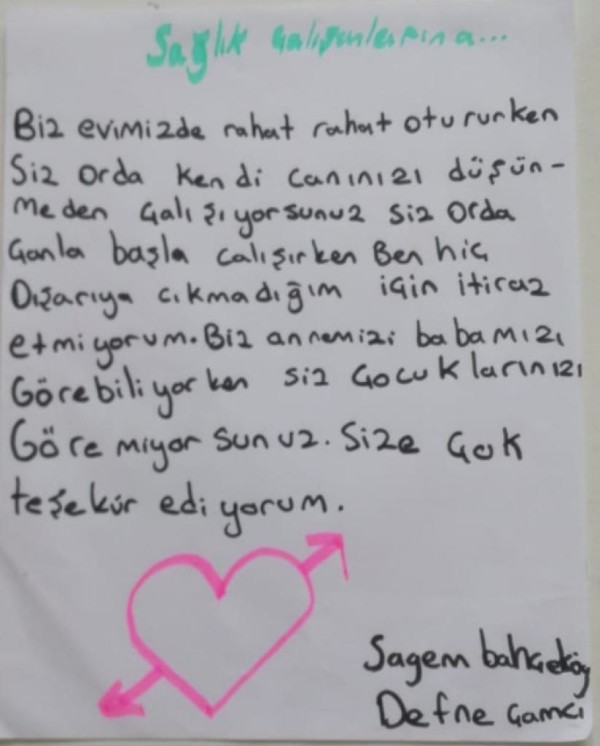 Sağlık Çalışanlarına...
Biz evimizde rahat rahat otururken
Siz orda kendi canınızı düşün-
meden Çalışıyorsunuz siz orda
Çanla başla calışırken Ben hiç
Dışarıya cıkmadığım için itiraz
etmiyorum. Biz annemizi babamızı
Görebiliyorken siz Çocuklarınızı
Göremiyorsunuz. Size Çok
teşekür ediyorum.
Sagem bahçeköy
Defne Çamcı